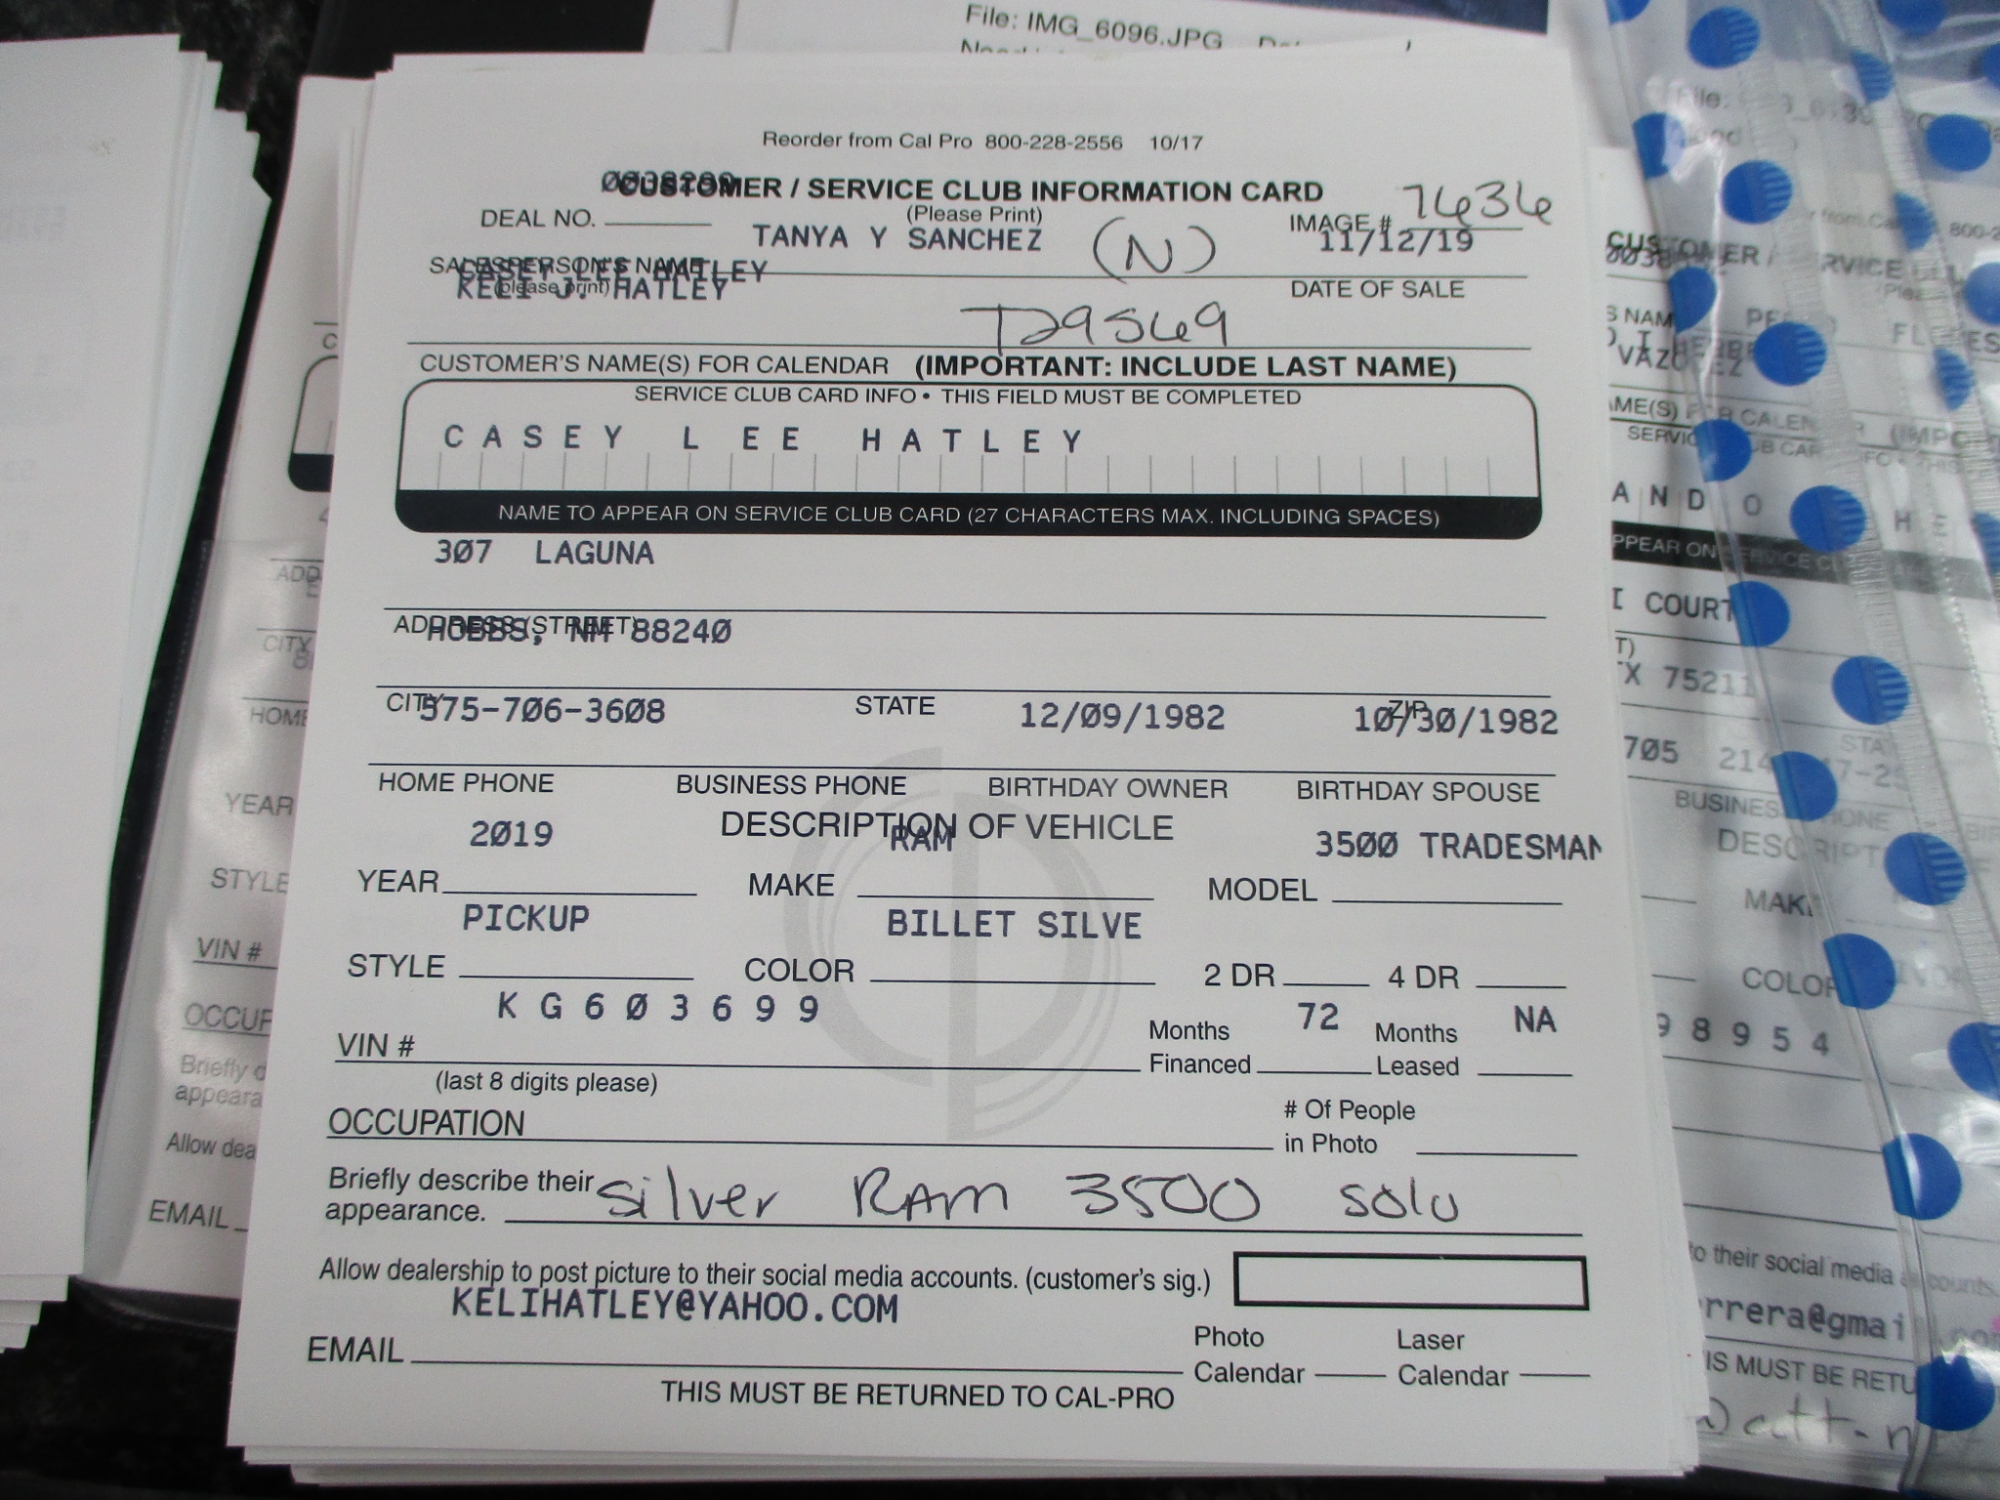 File: IMG_6096.JPG
Reorder from Cal Pro 800-228-2556 10/17
CUSTOMER / SERVICE CLUB INFORMATION CARD
(Please Print)
DEAL NO.
IMAGE # 7636
TANYA Y SANCHEZ (N) 11/12/19
SALESPERSON'S NAME
(please print)
CASEY LEE HATLEY
KELI J. HATLEY
DATE OF SALE
T29569
CUSTOMER'S NAME(S) FOR CALENDAR (IMPORTANT: INCLUDE LAST NAME)
SERVICE CLUB CARD INFO • THIS FIELD MUST BE COMPLETED
CASEY LEE HATLEY
NAME TO APPEAR ON SERVICE CLUB CARD (27 CHARACTERS MAX. INCLUDING SPACES)
307 LAGUNA
ADDRESS (STREET)
HOBBS, NM 88240
CITY STATE ZIP
575-706-3608 12/09/1982 10/30/1982
HOME PHONE BUSINESS PHONE BIRTHDAY OWNER BIRTHDAY SPOUSE
DESCRIPTION OF VEHICLE
2019 RAM 3500 TRADESMAN
YEAR MAKE MODEL
PICKUP BILLET SILVE
STYLE COLOR 2 DR 4 DR
KG603699
VIN #
(last 8 digits please)
Months Financed 72 Months Leased NA
OCCUPATION
# Of People
in Photo
Briefly describe their
appearance. Silver RAM 3500 solo
Allow dealership to post picture to their social media accounts. (customer's sig.)
KELIHATLEY@YAHOO.COM
EMAIL
Photo Calendar Laser Calendar
THIS MUST BE RETURNED TO CAL-PRO
YEAR
STYLE
VIN #
OCCUP
Briefly d
appeara
Allow dea
EMAIL
I COURT
75211
705
BUSINES
MAK
COLOR
98954
to their social media accounts.
rrera@gmai
IS MUST BE RETU